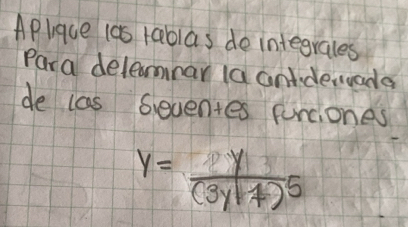 Aplique las tablas de integrales
Para determinar la antiderivada
de las Siguentes funciones
Y = y / (3y+7)^5